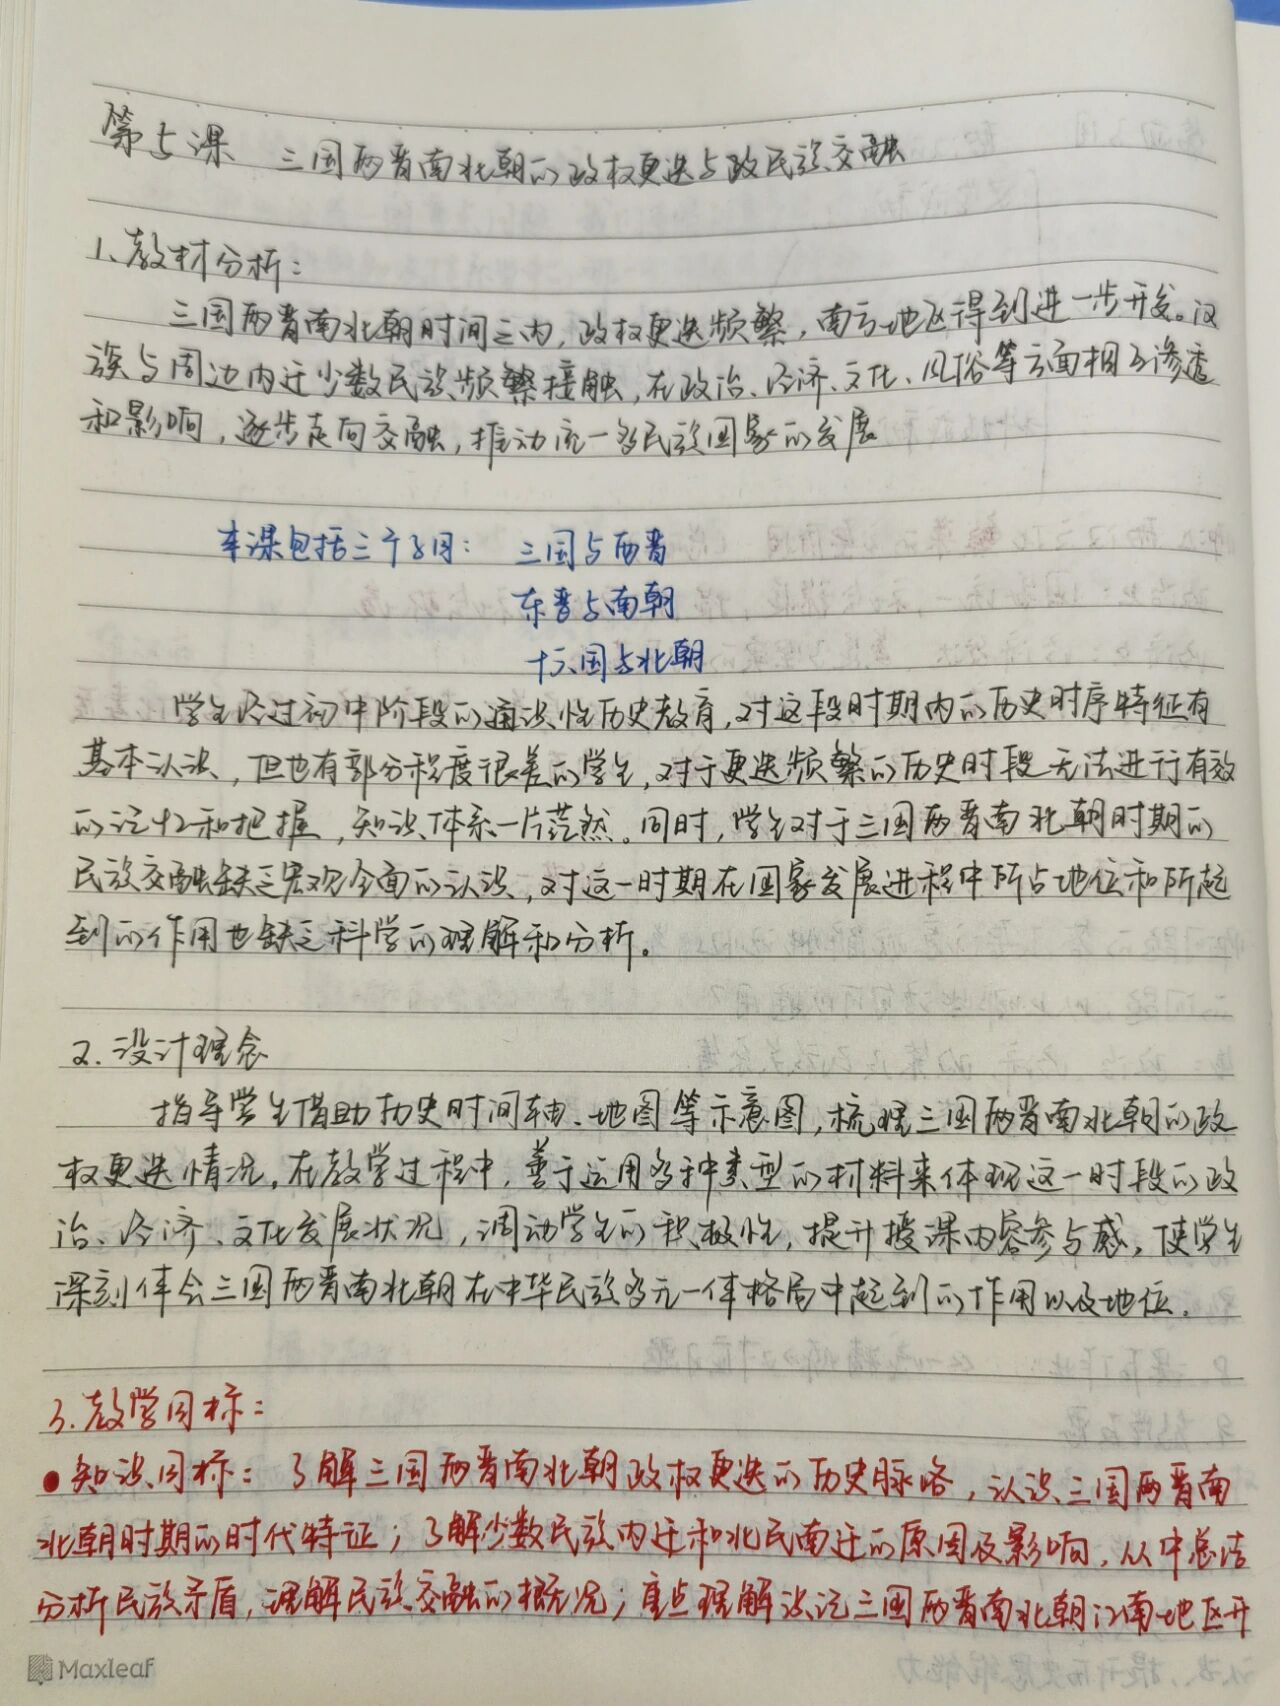 第5课 三国两晋南北朝的政权更迭与政民族交融
1、教材分析：
三国两晋南北朝时间之内，政权更迭频繁，南方地区得到进一步开发。汉
族与周边内迁少数民族频繁接触，在政治、经济、文化、风俗等方面相互渗透
和影响，逐步走向交融，推动统一多民族国家的发展
本课包括三个子目： 三国与西晋
东晋与南朝
十六国与北朝
学生经过初中阶段的通识性历史教育，对这段时期内的历史时序特征有
基本认识，但也有部分程度很差的学生，对于更迭频繁的历史时段无法进行有效
的记忆和把握，知识体系一片茫然。同时，学生对于三国两晋南北朝时期的
民族交融缺乏宏观全面的认识，对这一时期在国家发展进程中所占地位和所起
到的作用也缺乏科学的理解和分析。
2.设计理念
指导学生借助历史时间轴、地图等示意图，梳理三国两晋南北朝的政
权更迭情况。在教学过程中，善于运用多种类型的材料来体现这一时段的政
治、经济、文化发展状况，调动学生的积极性，提升授课内容参与感。使学生
深刻体会三国两晋南北朝在中华民族多元一体格局中起到的作用以及地位。
3.教学目标：
●知识目标：了解三国两晋南北朝政权更迭的历史脉络，认识三国两晋南
北朝时期的时代特征；了解少数民族内迁和北民南迁的原因及影响，从中总结
分析民族矛盾，理解民族交融的概况；重点理解识记三国两晋南北朝江南地区开
Maxleaf